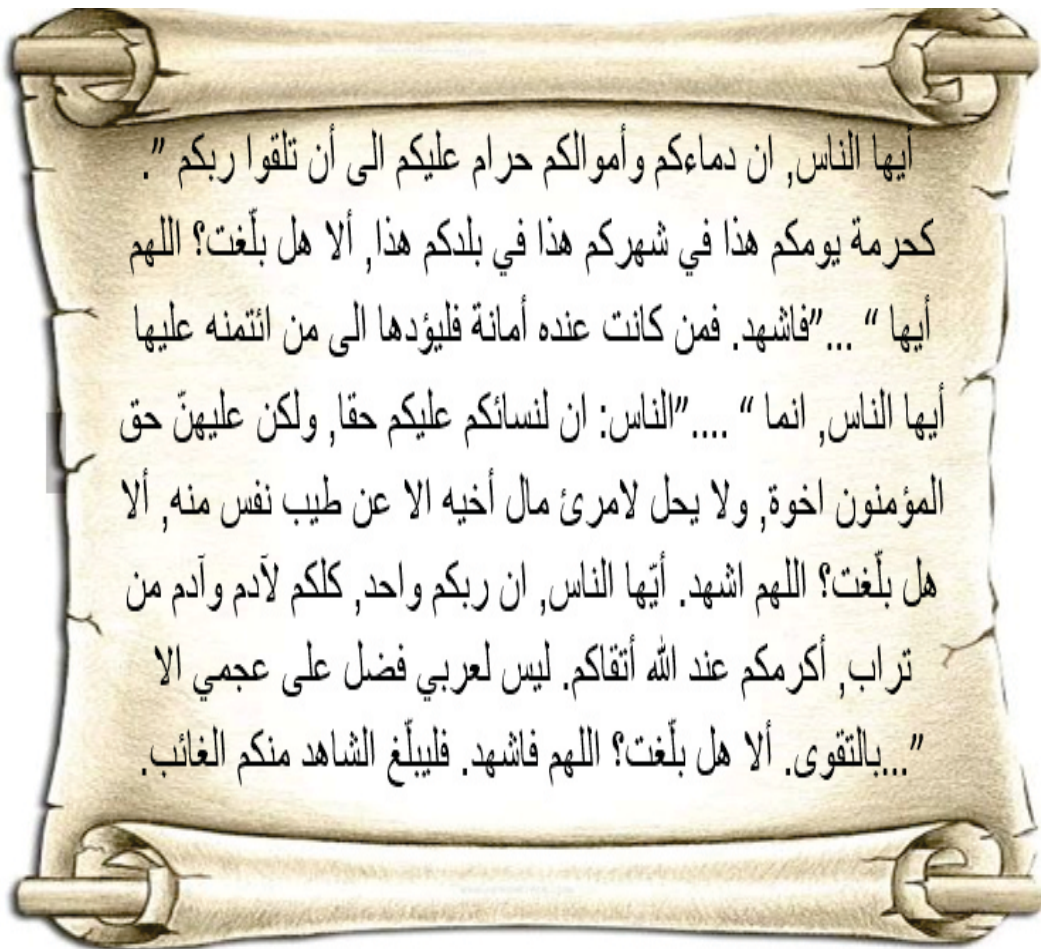 أيها الناس, ان دماءكم وأموالكم حرام عليكم الى أن تلقوا ربكم ”.
كحرمة يومكم هذا في شهركم هذا في بلدكم هذا, ألا هل بلّغت؟ اللهم
أيها “ ...”فاشهد. فمن كانت عنده أمانة فليؤدها الى من ائتمنه عليها
أيها الناس, انما “ ....”الناس: ان لنسائكم عليكم حقا, ولكن عليهنّ حق
المؤمنون اخوة, ولا يحل لامرئ مال أخيه الا عن طيب نفس منه, ألا
هل بلّغت؟ اللهم اشهد. أيّها الناس, ان ربكم واحد, كلكم لآدم وآدم من
تراب, أكرمكم عند الله أتقاكم. ليس لعربي فضل على عجمي الا
”...بالتقوى. ألا هل بلّغت؟ اللهم فاشهد. فليبلّغ الشاهد منكم الغائب.